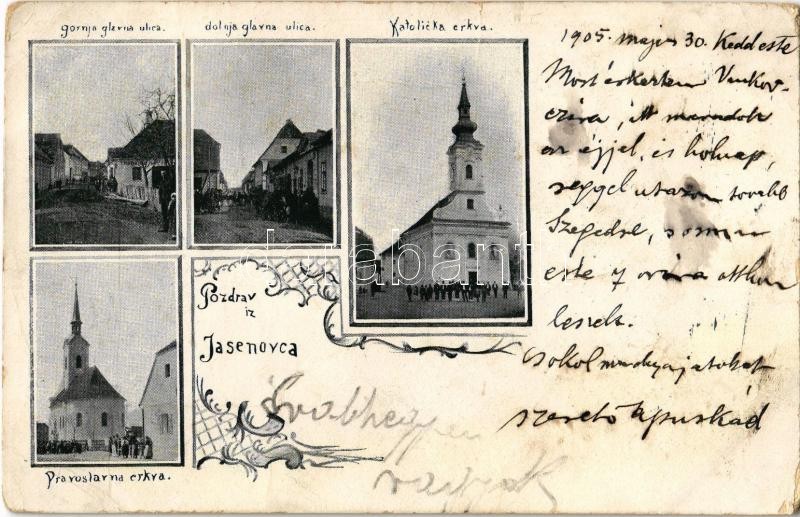 gornja glavna ulica.
dolnja glavna ulica.
Katolička crkva.
Pozdrav
iz
Jasenovca
Pravoslavna crkva.
1905. majus 30. Kedd este
Most érkeztem Vinkov-
czára, itt maradok
az éjjel, és holnap,
reggel utazom tovább
Szegedre, s
este 7 órára otthon
leszek.
Csokol mindnyájatokat
szerető Apuskád
darabanth